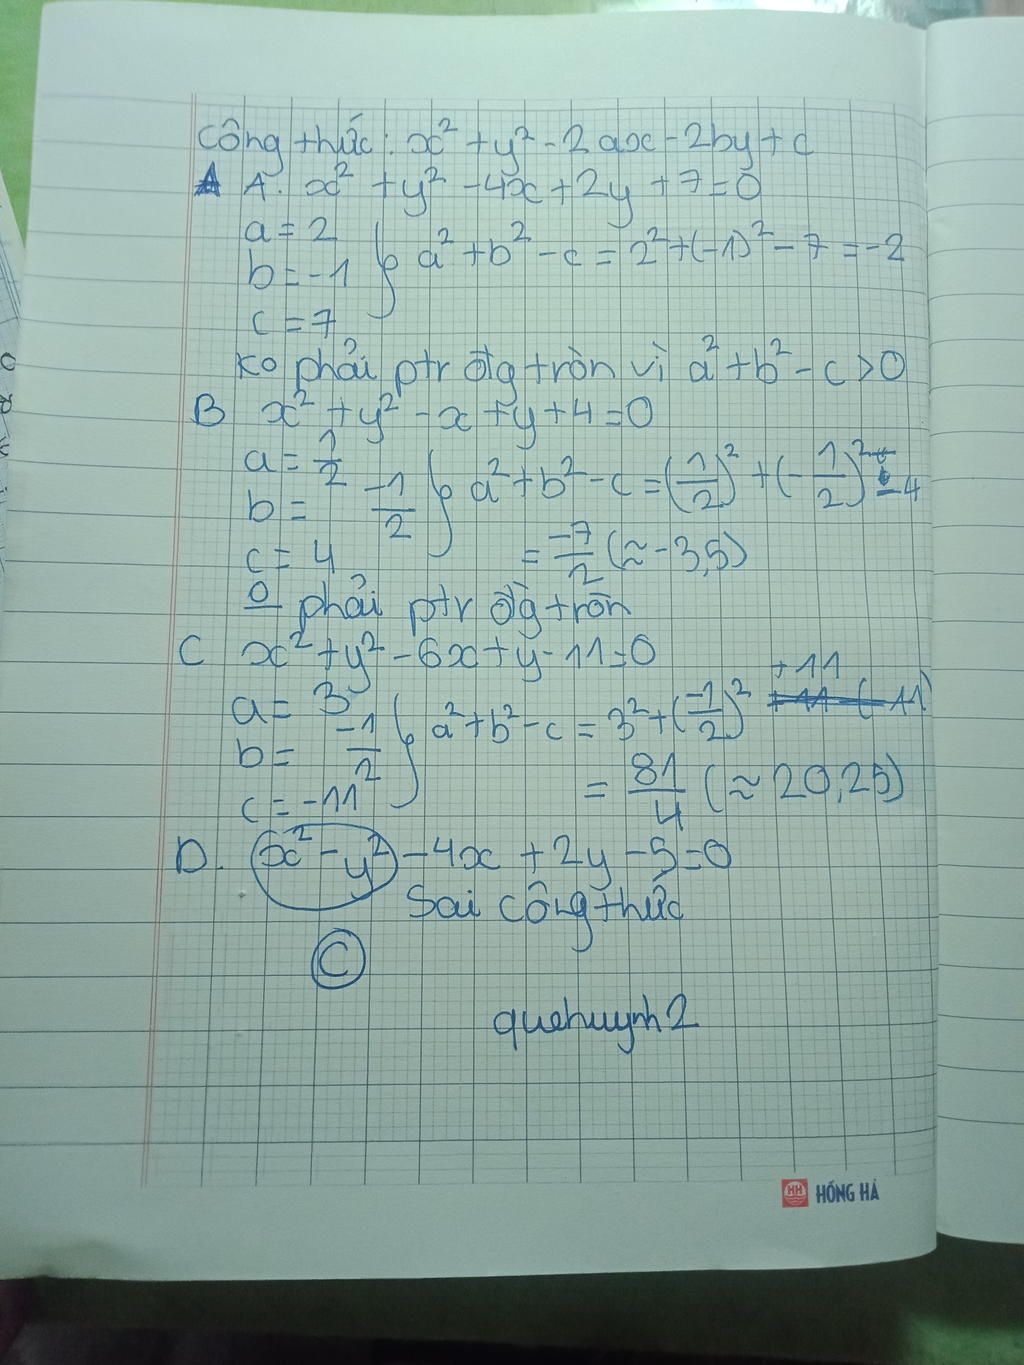 Công thức: x² + y² - 2ax - 2by + c
A. x² + y² - 4x + 2y + 7 = 0
a = 2
b = -1 } a² + b² - c = 2² + (-1)² - 7 = -2
c = 7
Ko phải ptr đtg tròn vì a² + b² - c > 0
B x² + y² - x + y + 4 = 0
a = 1/2
b = -1/2 } a² + b² - c = (1/2)² + (-1/2)² - 4
c = 4 = -7/2 (≈ -3,5)
0 phải ptr đg tròn
C x² + y² - 6x + y - 11 = 0
a = 3
b = -1/2 } a² + b² - c = 3² + (-1/2)² + 11
c = -11 = 81/4 (≈ 20,25)
D. x² - y² - 4x + 2y - 5 = 0
Sai công thức
C
quehuynh2
HH HỒNG HÀ